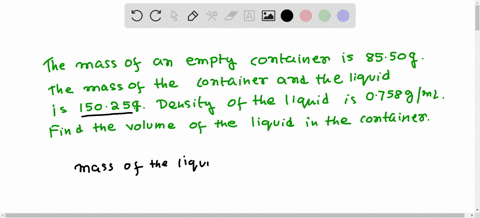 The mass of an empty container is 85.50g.
The mass of the container and the liquid
is 150.25g. Density of the liquid is 0.758g/mL.
Find the volume of the liquid in the container.
mass of the liqui